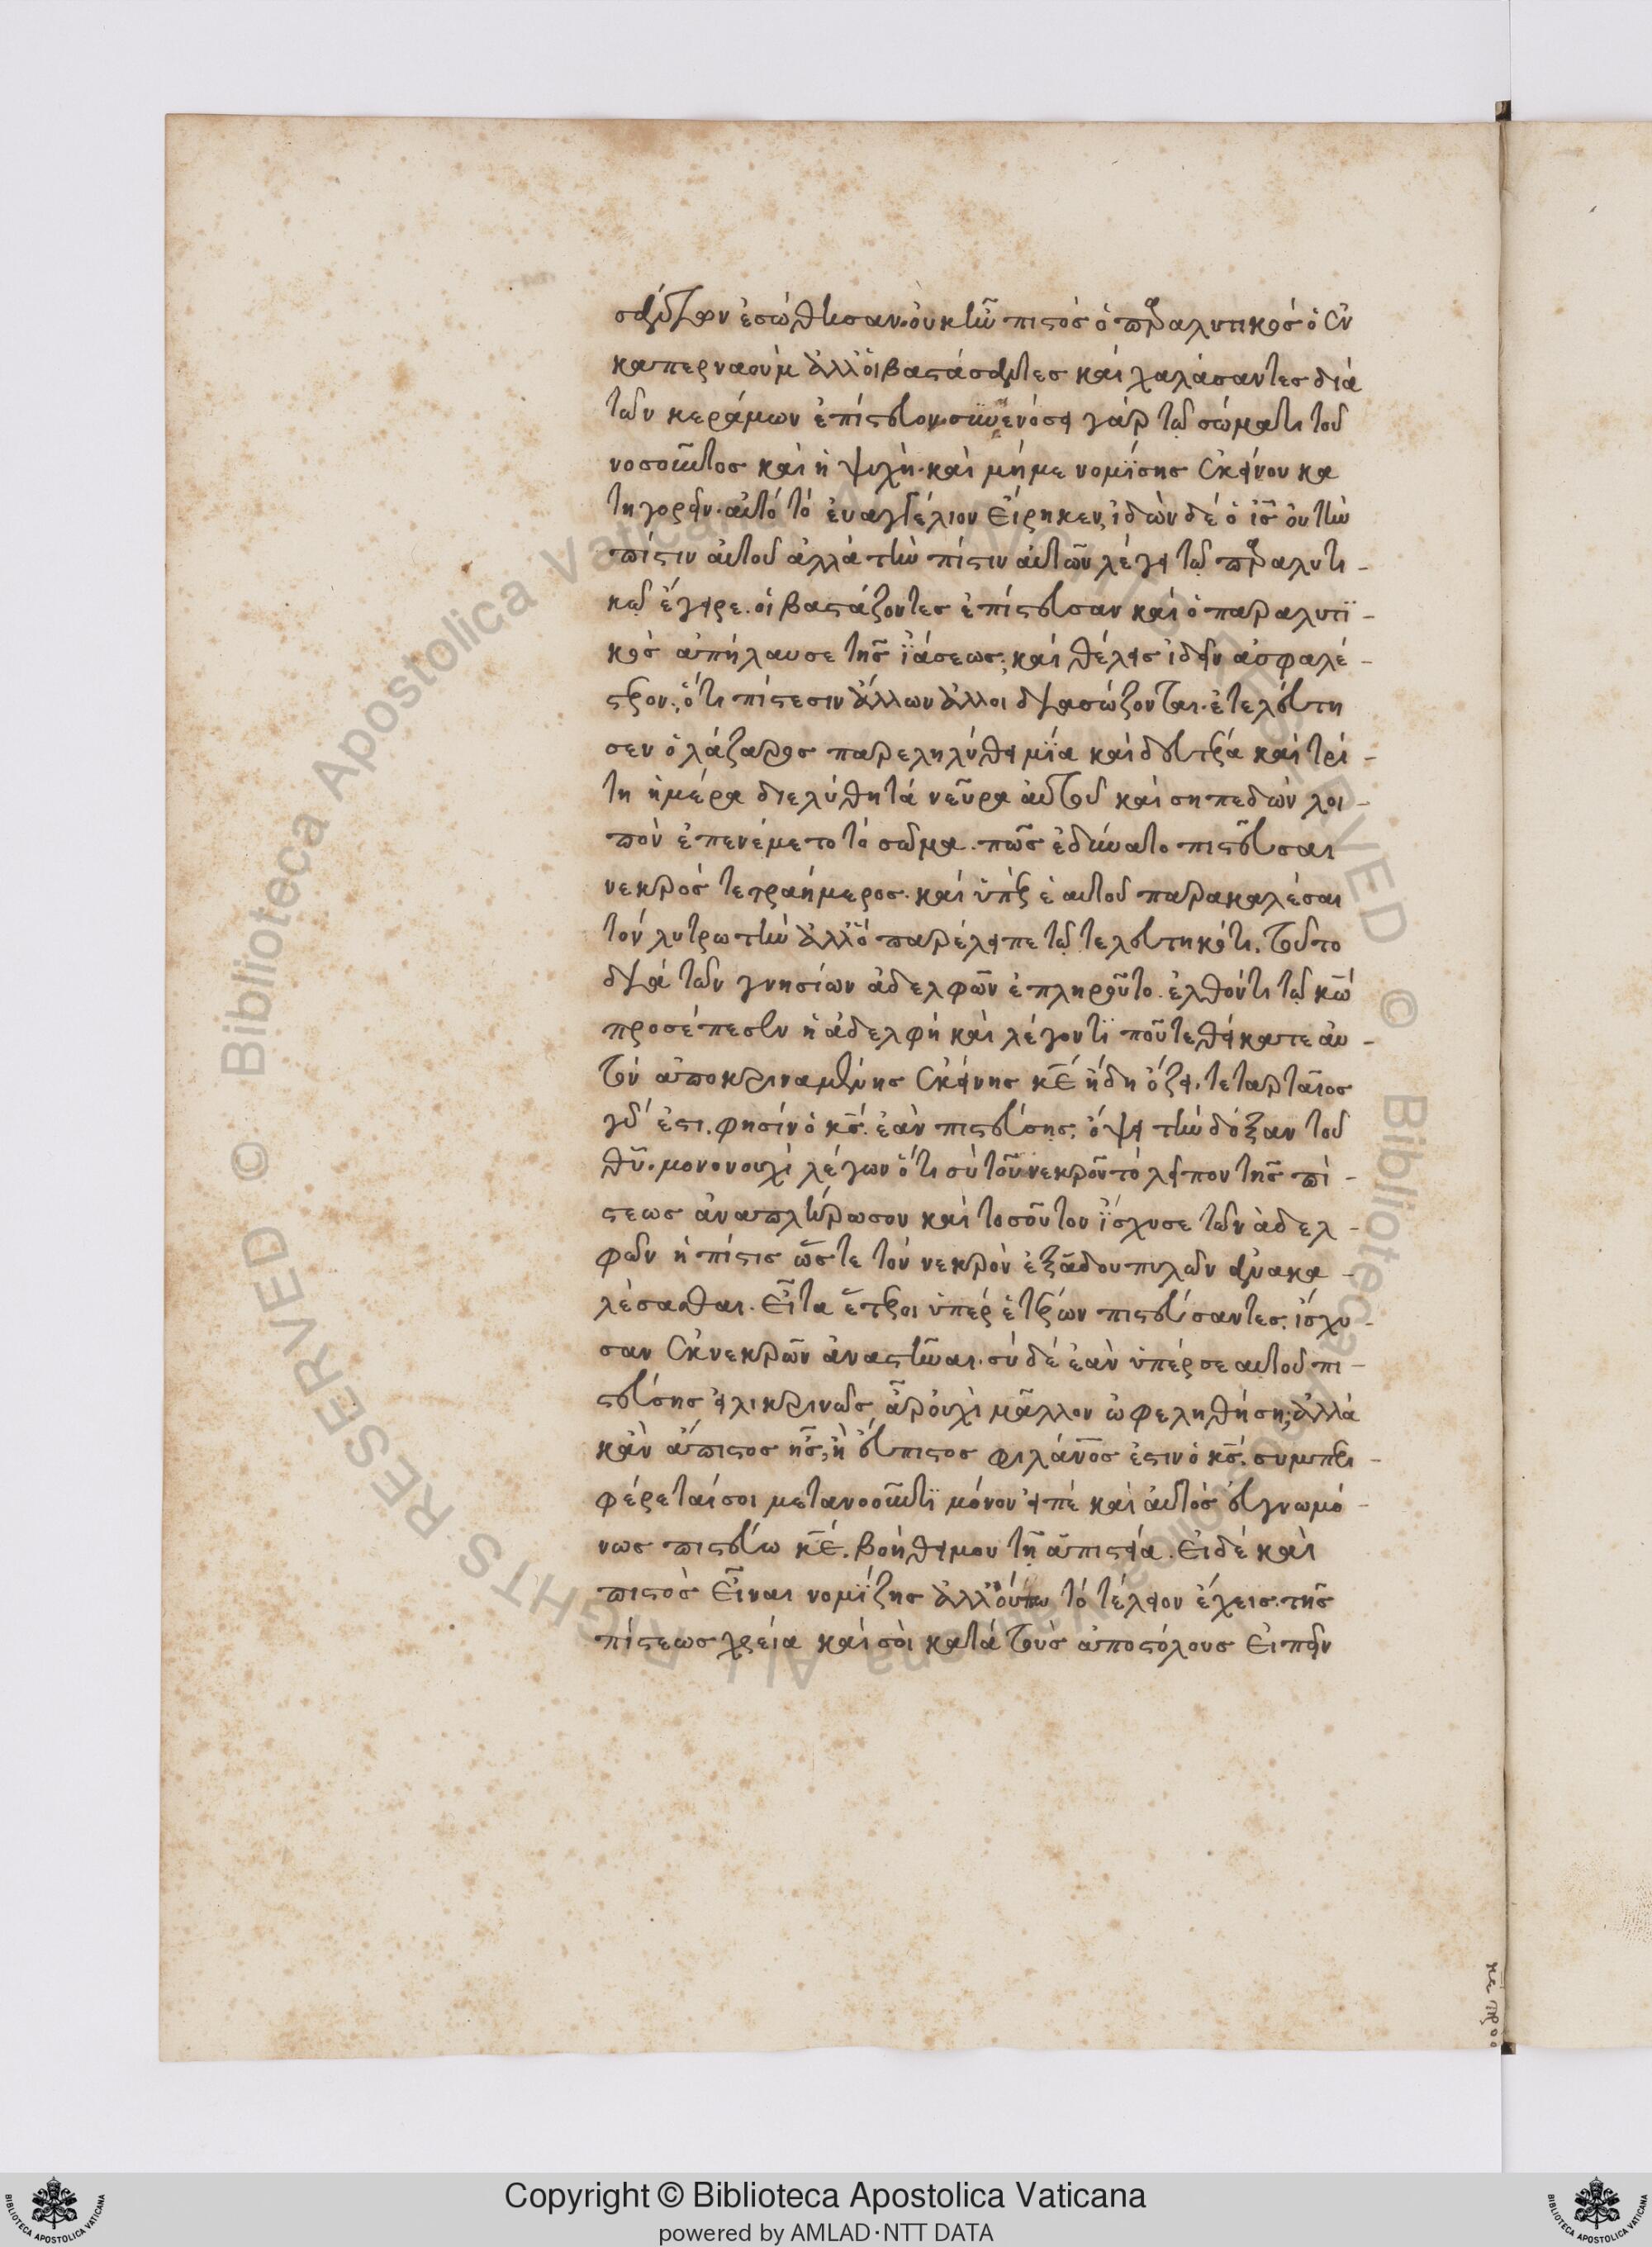 σάντων ἐσώθησαν· οὐκ ἦν πιστὸς ὁ παραλυτικὸς ὁ ἐν
καπερναοὺμ ἀλλ' οἱ βαστάσαντες καὶ χαλάσαντες διὰ
τῶν κεράμων ἐπίστευον. συνενόσει γὰρ τῷ σώματι τοῦ
νοσοῦντος καὶ ἡ ψυχὴ· καὶ μή με νομίσης ἐκείνου κα
τηγορεῖν· αὐτὸ τὸ ἐυαγγέλιον εἴρηκεν, ἰδὼν δὲ ὁ ις ὀυ τὴν
πίστιν αὐτοῦ ἀλλὰ τὴν πίστιν αὐτῶν λέγει τῷ παραλυτι-
κῷ ἔγειρε. οἱ βαστάζοντες ἐπίστευσαν καὶ ὁ παραλυτι-
κὸς ἀπήλαυσε τῆς ἰάσεως; καὶ θέλεις ἰδεῖν ἀσφαλέ-
στερον, ὅτι πίστεσιν ἄλλων ἄλλοι διασώζονται· ἐτελεύτη
σεν ὁ λάζαρος παρεληλύθει μία καὶ δευτέρα καὶ τρί-
τη ἡμέρα διελύθη τὰ νεῦρα αὐτοῦ καὶ σηπεδὼν λοι-
πὸν ἐπενέμετο τὸ σῶμα. πῶς ἐδύνατο πιστεῦσαι
νεκρὸς τετραήμερος. καὶ ὑπὲρ ἑαυτοῦ παρακαλέσαι
τὸν λυτρωτὴν ἀλλ' ὃ παρέλειπε τῷ τελευτηκότι. τοῦτο
διὰ τῶν γνησίων ἀδελφῶν ἐπληροῦτο. ἐλθόντι τῷ κω
προσέπεσεν ἡ ἀδελφὴ καὶ λέγοντι ποῦ τεθείκατε αὐ-
τὸν ἀποκριναμένης ἐκείνης κε ἤδη ὄζει. τεταρταῖος
γάρ ἐστι. φησὶν ὁ κς. ἐὰν πιστεύσης. ὄψει τὴν δόξαν τοῦ
θυ. μονονουχὶ λέγων ὅτι σὺ τοῦ νεκροῦ τὸ λεῖπον τῆς πί-
στεως ἀναπλήρωσον καὶ τοσοῦτον ἴσχυσε τῶν ἀδελ-
φῶν ἡ πίστις ὥστε τὸν νεκρὸν ἐξ ἅδου πυλῶν ἀνακα-
λέσασθαι. εἶτα ἕτεροι ὑπὲρ ἑτέρων πιστεύσαντες. ἴσχυ-
σαν ἐκ νεκρῶν ἀναστῆναι. σὺ δὲ ἐὰν ὑπὲρ σεαυτοῦ πι-
στεύσης εἰλικρινῶς ἆρ' οὐχὶ μᾶλλον ὠφεληθήση; ἀλλὰ
κἂν ἄπιστος ἦς, ἢ εὔπιστος φιλάνος ἐστιν ὁ κς. συμπερι-
φέρεταί σοι μετανοοῦντι μόνον εἰπὲ καὶ αὐτὸς εὐγνωμό-
νως πιστεύω κε. βοήθει μου τῆ ἀπιστεία. εἰ δὲ καὶ
πιστὸς εἶναι νομίζης ἀλλ' οὔπω τὸ τέλειον ἔχεις. τῆς
πίστεως χρεία καί σοι κατὰ τοὺς ἀποστόλους εἰπεῖν